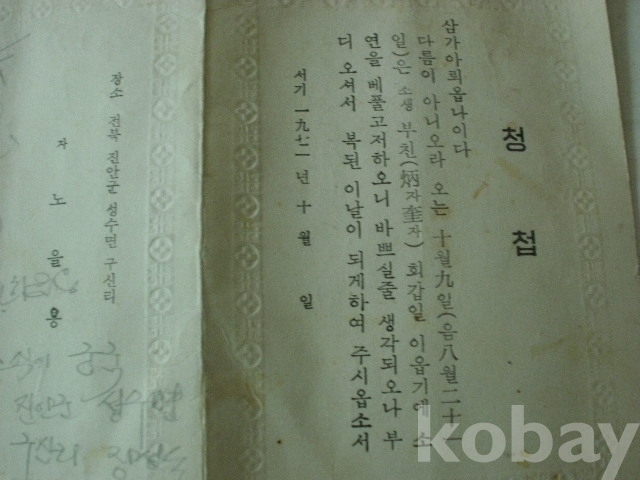 청첩
삼가아뢰옵나이다
다름이 아니오라 오는 十月九日(음八月二十一
일)은 소생 부친(炳자奎자) 회갑일 이옵기에 소
연을 베풀고저하오니 바쁘실줄 생각되오나 부
디 오셔서 복된 이날이 되게하여 주시옵소서
서기 一九七一年 十월 일
장소 전북 진안군 성수면 구신티
자 노을용
진안군 성수면
kobay